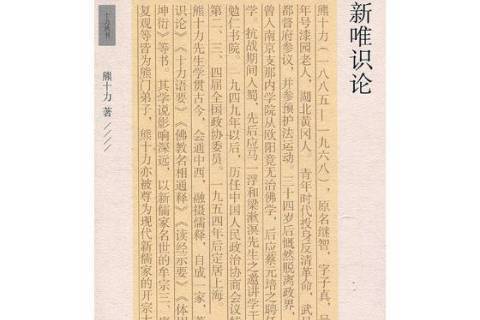 新唯识论
熊十力（一八八五—一九六八），原名继智，字子真，号
年号漆园老人，湖北黄冈人。青年时代投身反清革命，武昌
都督府参议，并参预护法运动，三十四岁后慨然脱离政界，
曾入南京支那内学院从欧阳竟无治佛学，后应蔡元培之聘任
学。抗战期间入蜀，先后应马一浮和梁漱溟先生之邀讲学于
勉仁书院。一九四九年以后，历任中国人民政治协商会议特
第二、三、四届全国政协委员。一九五四年后定居上海。
熊十力先生学贯古今，会通中西，融摄儒释，自成一家，著
识论》《十力语要》《佛教名相通释》《读经示要》《体用
坤衍》等书。其学说影响深远，以新儒家名世的牟宗三、唐
复观等皆为熊门弟子，熊十力亦被尊为现代新儒家的开宗大
十力丛书
熊十力 著